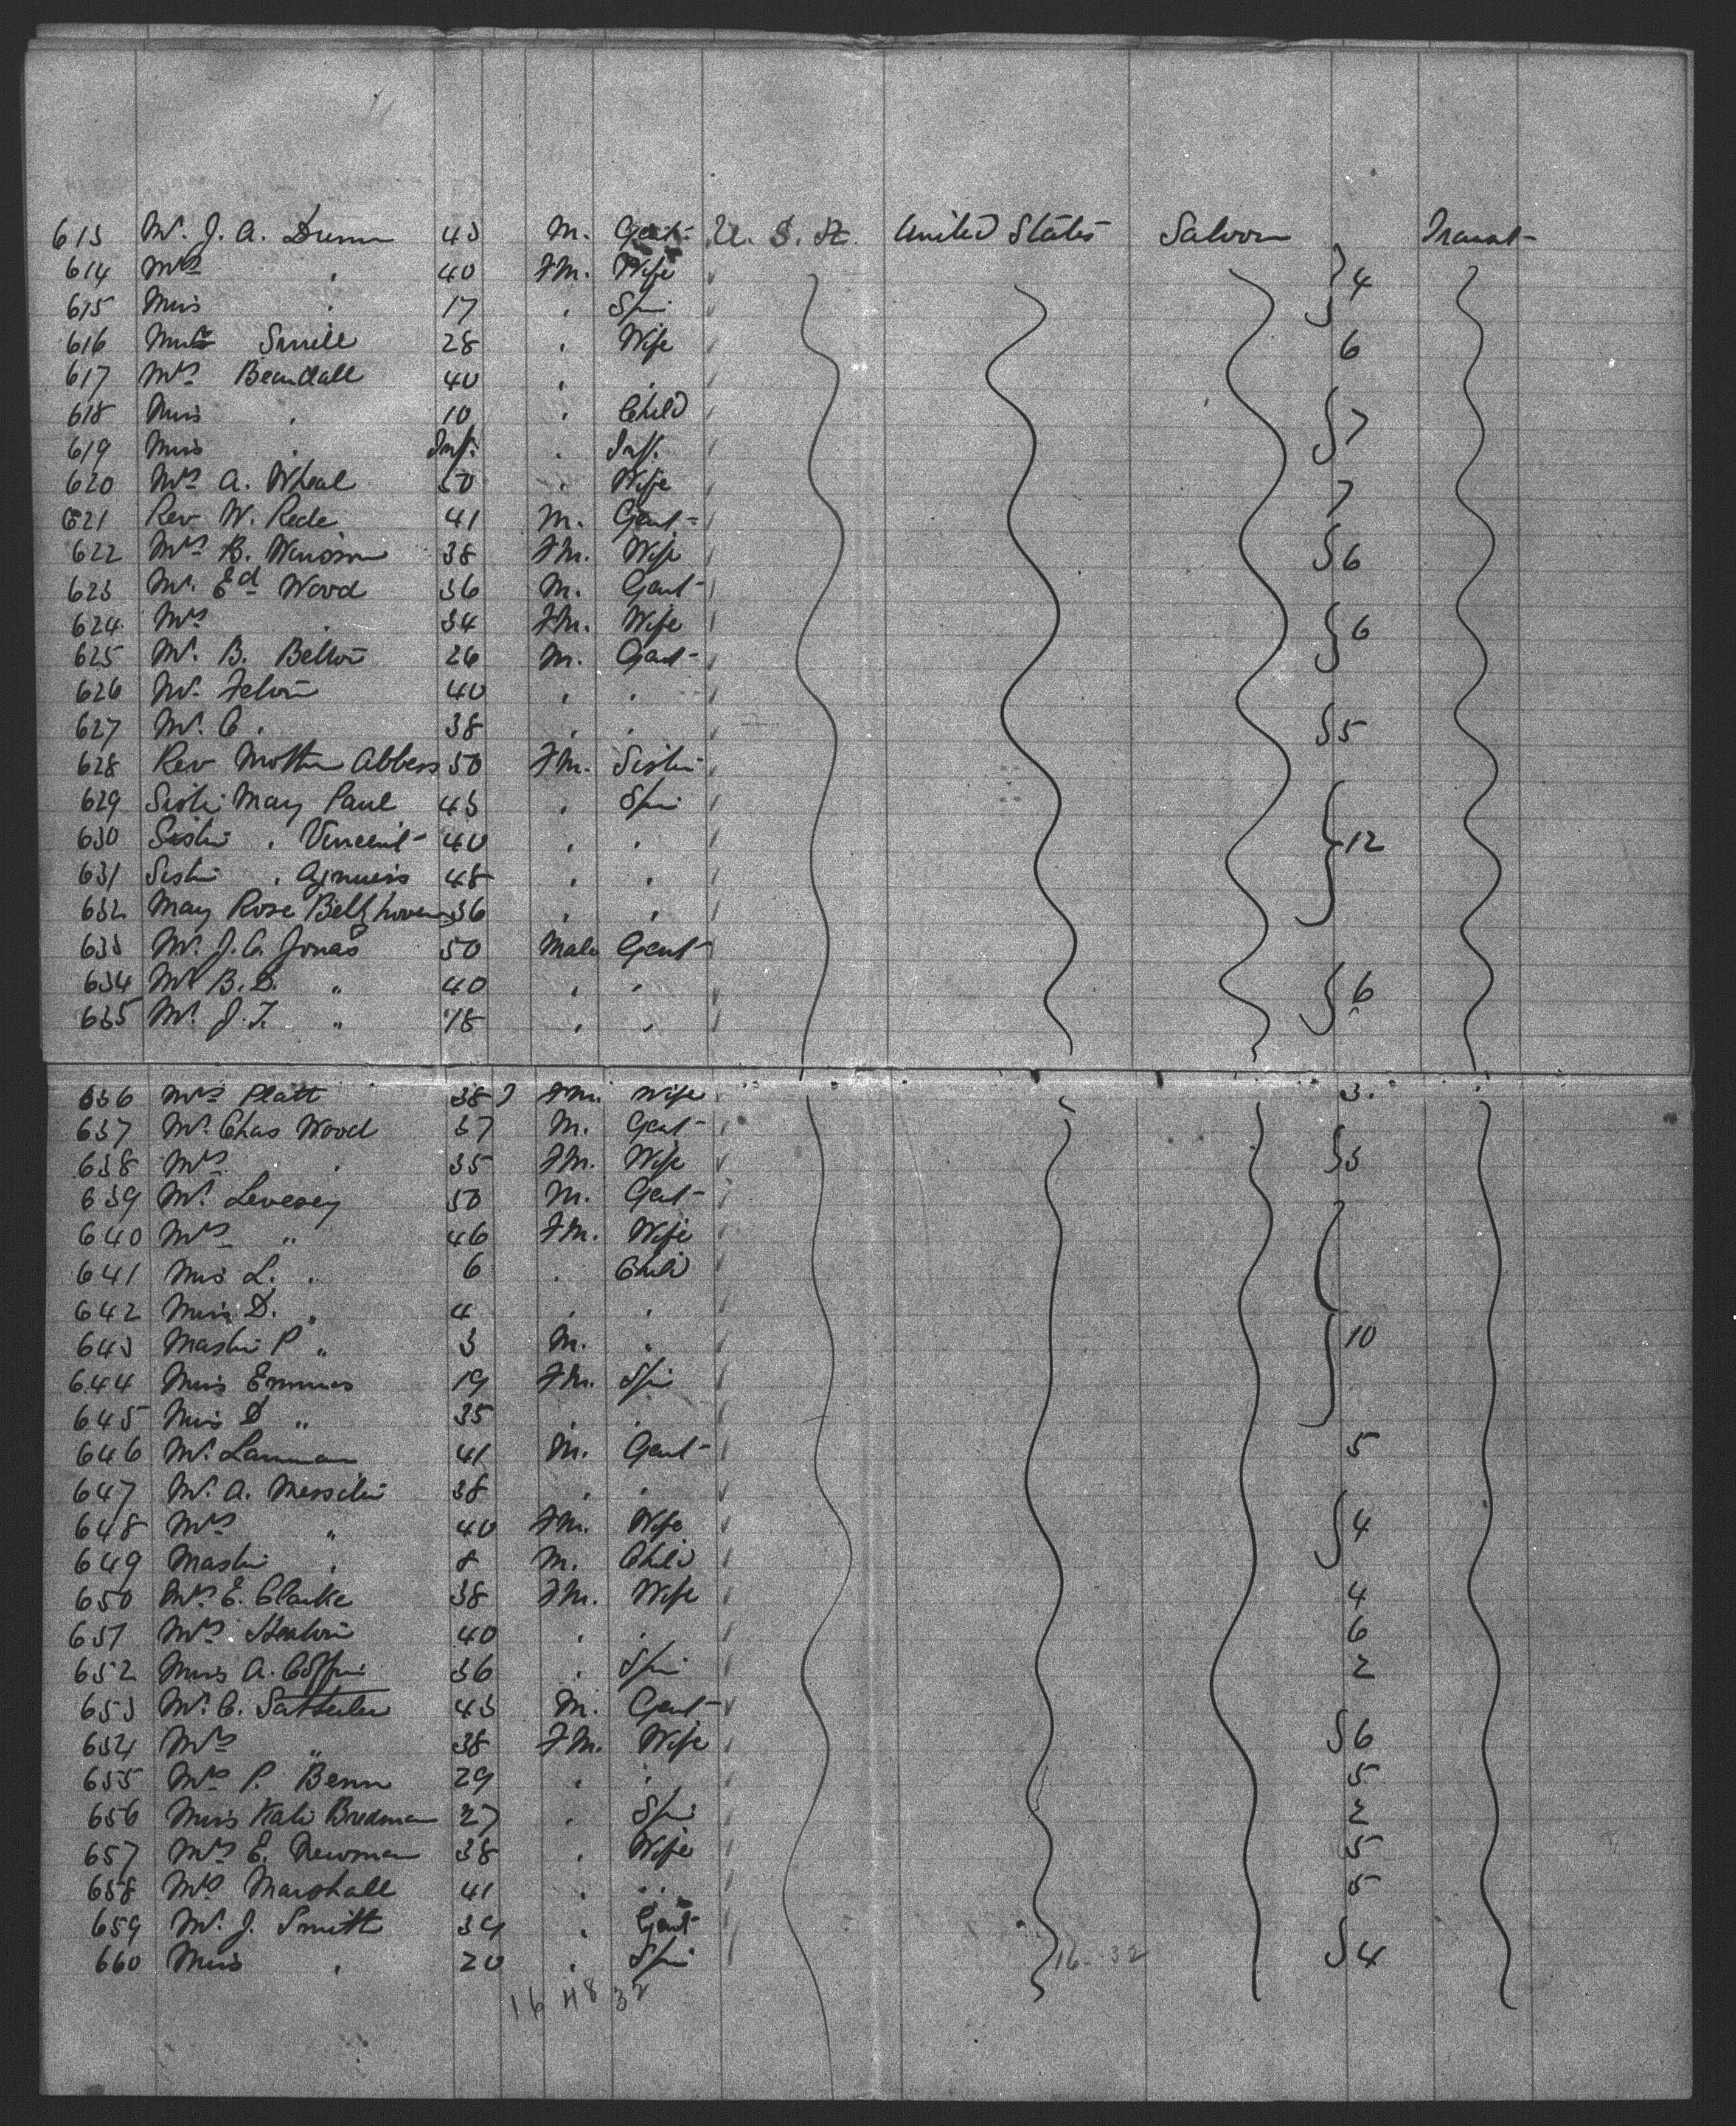 613 Mr. J. A. Dunn 43 M. Gent- U. S. A. United States Saloon Transit-
614 Mrs " 40 Fm. Wife 4
615 Miss " 17 " Spin
616 28 " Wife 6
617 Mrs Beaudall 40 " "
618 Miss " 10 " Child 7
619 Miss " Inf. " Inf.
620 Mrs A. Wheal 50 " Wife 7
621 Rev W. Rede 41 M. Gent-
622 Mrs B. 38 Fm. Wife 6
623 Mr. Ed Wood 36 M. Gent-
624 Mrs " 34 Fm. Wife 6
625 Mr. B. 26 M. Gent-
626 Mr. 40 " "
627 Mr. C. 38 " " 5
628 Rev Mother Abbess 50 Fm. Sister
629 Sister Mary Paul 43 " Spin
630 Sister " Vincent- 40 " " 12
631 Sister " 48 " "
632 Mary Rose 36 " "
633 Mr. J. C. Jonas 50 Male Gent-
634 Mr B. D. " 40 " " 6
635 Mr. J. T. " 78 " "
636 Mrs Platt 38 Fm. Wife 3.
637 Mr. Chas Wood 37 M. Gent-
638 Mrs " 35 Fm. Wife 3
639 Mr. Levesey 50 M. Gent-
640 Mrs " 46 Fm. Wife
641 Miss L. " 6 " Child
642 Miss D. " 4 " "
643 Master P " 3 M. " 10
644 Miss Emmas 19 Fm. Spin
645 Miss D " 35 " "
646 Mr. Lanman 41 M. Gent- 5
647 Mr. A. 38 " "
648 Mrs " 40 Fm. Wife 4
649 Master " 8 M. Child
650 Mrs E. Clarke 38 Fm. Wife 4
651 Mrs 40 " " 6
652 Miss A. Coffin 36 " Spin 2
653 Mr. C. 43 M. Gent-
654 Mrs " 38 Fm. Wife 6
655 Mrs P. Benn 29 " " 5
656 Miss Kate Bredman 27 " Spin 2
657 Mrs E. Newman 38 " Wife 5
658 Mrs Marshall 41 " " 5
659 Mr. J. Smith 34 " Gent-
660 Miss " 20 " Spin 16 32 4
16 48 32